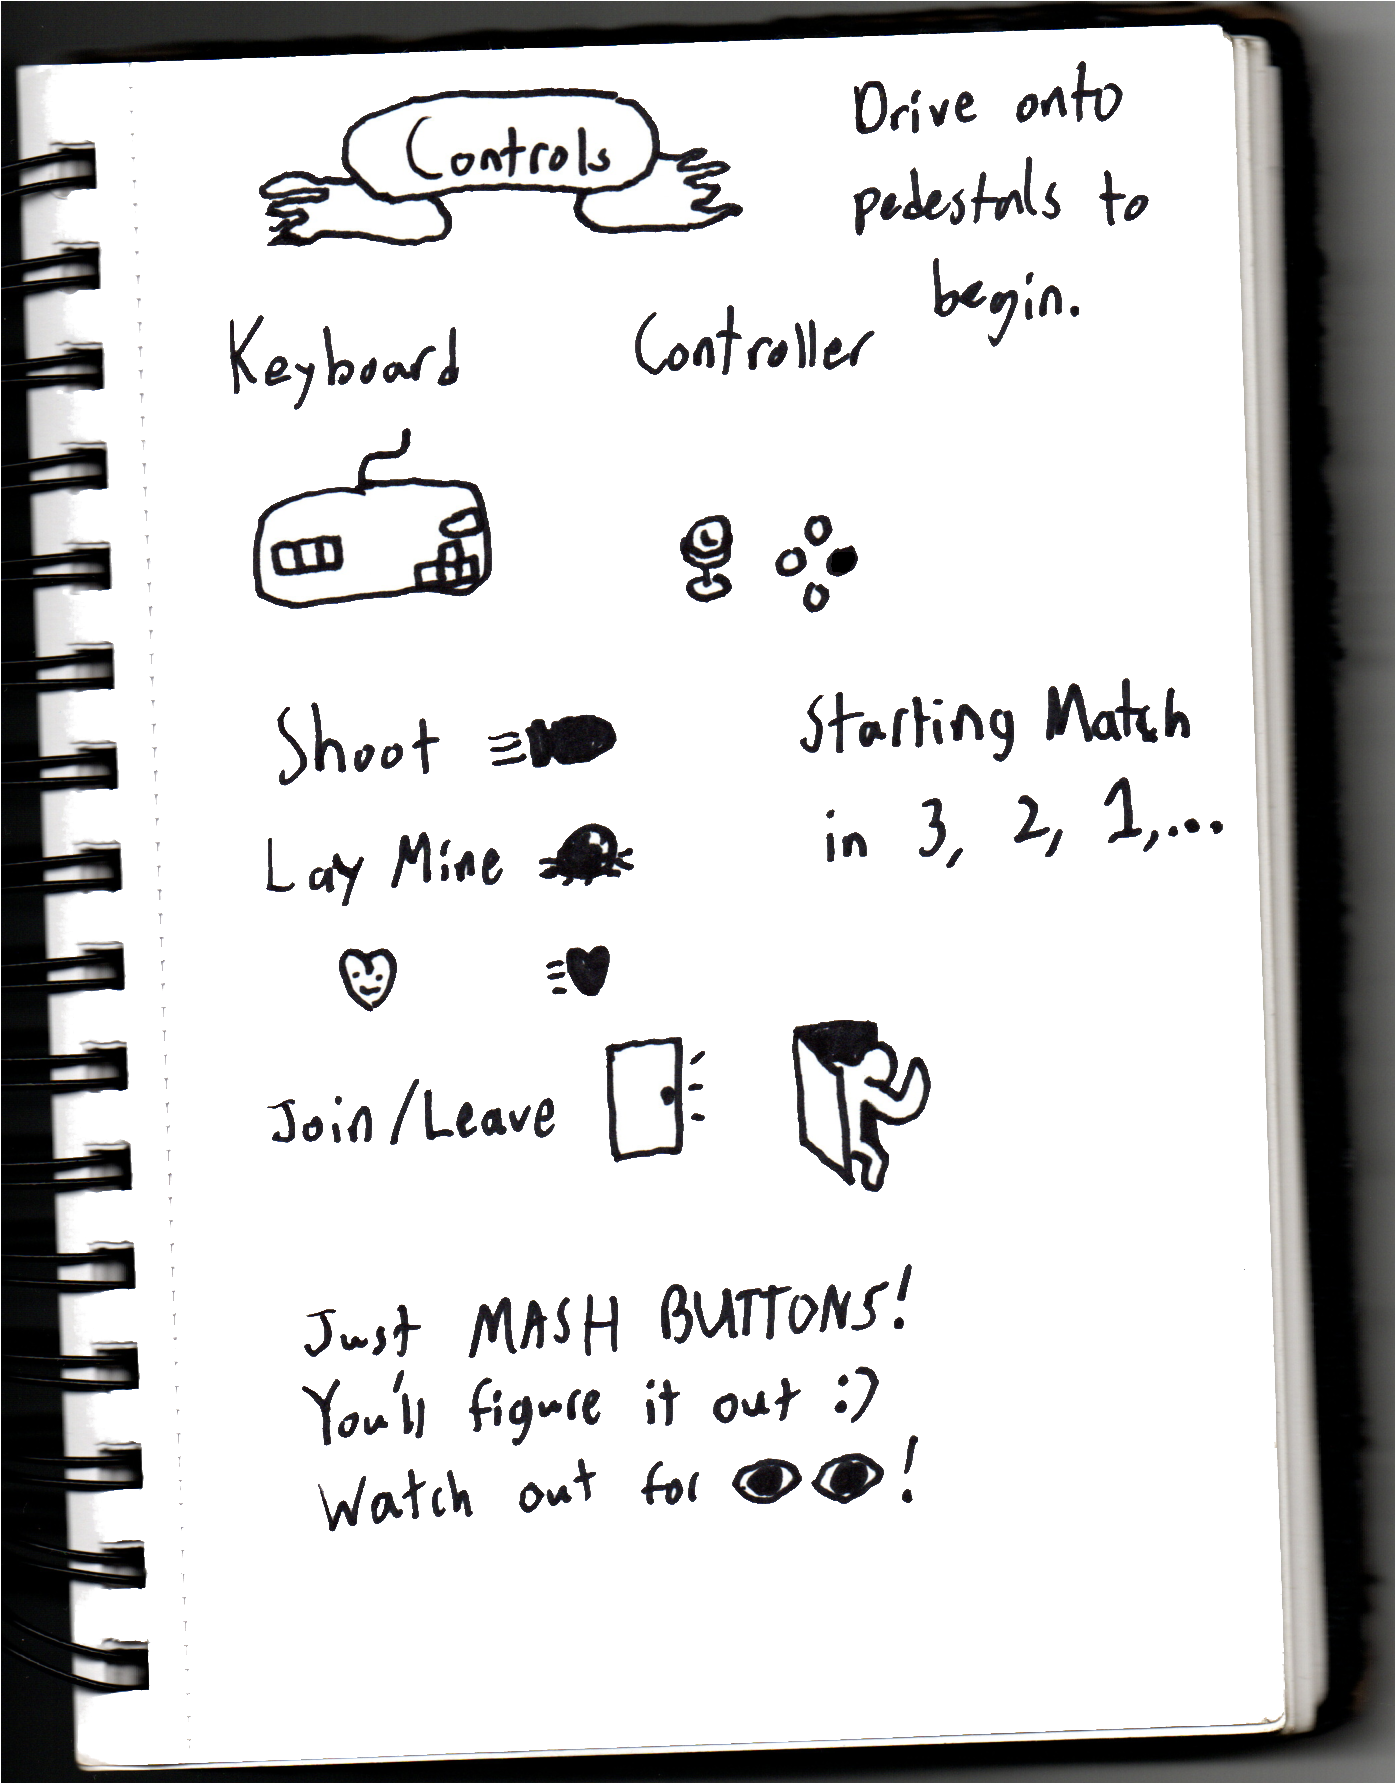 Controls
Drive onto
pedestals to
begin.
Keyboard
Controller
Shoot
Starting Match
in 3, 2, 1,...
Lay Mine
Join/Leave
Just MASH BUTTONS!
You'll figure it out :)
Watch out for !